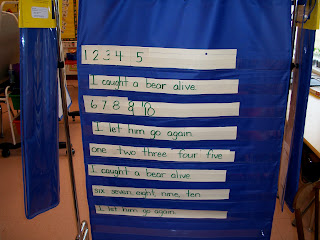 1 2 3 4 5
I caught a bear alive.
6 7 8 9 10
I let him go again.
one two three four five
I caught a bear alive
six, seven, eight, nine, ten
I let him go again.